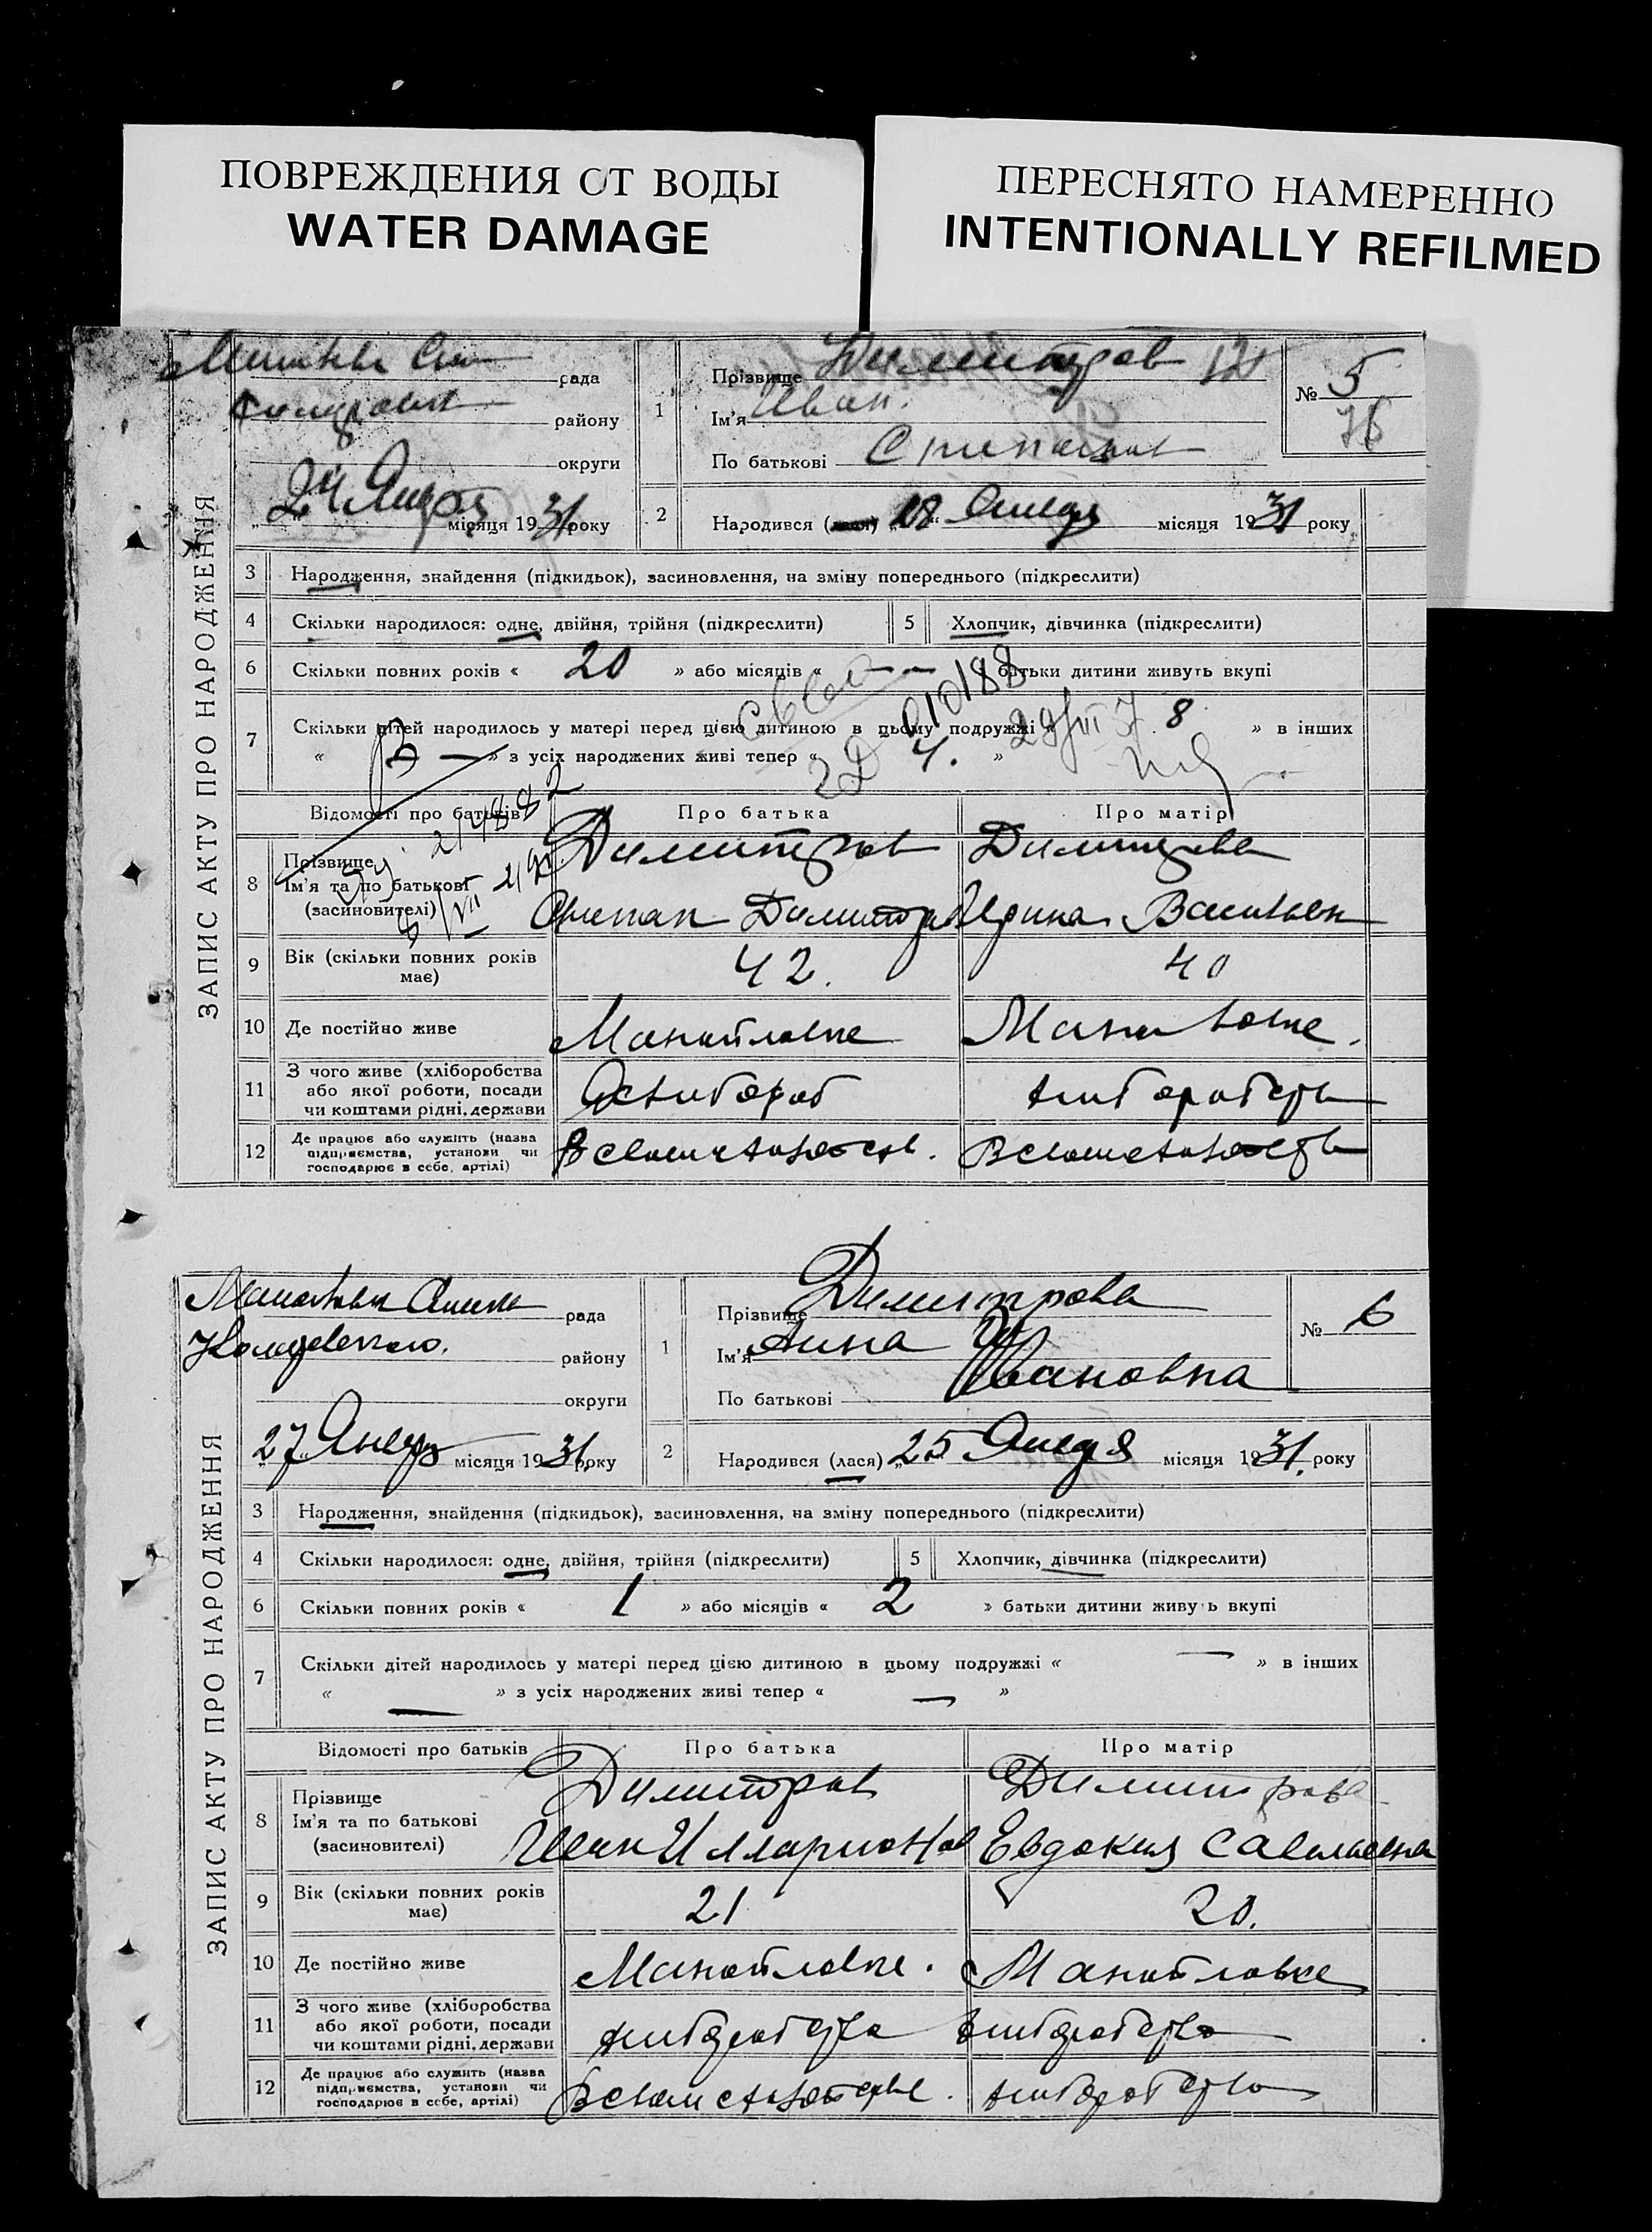 ПОВРЕЖДЕНИЯ ОТ ВОДЫ
WATER DAMAGE
ПЕРЕСНЯТО НАМЕРЕННО
INTENTIONALLY REFILMED
ЗАПИС АКТУ ПРО НАРОДЖЕННЯ
рада
району
округи
24 Января місяця 1931 року
1 Прізвище Димитров
Ім'я Иван.
По батькові Степанов
№ 5
76
2 Народився (лася) „18“ Января місяця 1931 року
3 Народження, знайдення (підкидьок), засиновлення, на зміну попереднього (підкреслити)
4 Скільки народилося: одне, двійня, трійня (підкреслити)
5 Хлопчик, дівчинка (підкреслити)
6 Скільки повних років « 20 » або місяців « — » батьки дитини живуть вкупі
7 Скільки дітей народилось у матері перед цією дитиною в цьому подружжі « 8 » в інших
« — » з усіх народжених живі тепер « 4. »
010188
214882
Відомості про батьків
Про батька
Про матір
8 Прізвище
Ім'я та по батькові
(засиновителі)
Димитров
Степан Димитров
Димитрова
Ирина Васильев
9 Вік (скільки повних років має)
42.
40
10 Де постійно живе
Манойловке
Манойловке.
11 З чого живе (хліборобства або якої роботи, посади чи коштами рідні, держави
Хлибороб
хлиборобства
12 Де працює або служить (назва підприємства, установи чи господарює в себе, артілі)
В своем хозяйств.
В своем хозяйства
ЗАПИС АКТУ ПРО НАРОДЖЕННЯ
рада
району
округи
27 Января місяця 1931 року
1 Прізвище Димитрова
Ім'я Анна
По батькові Ивановна
№ 6
2 Народився (лася) „25 Января місяця 1931. року
3 Народження, знайдення (підкидьок), засиновлення, на зміну попереднього (підкреслити)
4 Скільки народилося: одне, двійня, трійня (підкреслити)
5 Хлопчик, дівчинка (підкреслити)
6 Скільки повних років « 1 » або місяців « 2 » батьки дитини живуть вкупі
7 Скільки дітей народилось у матері перед цією дитиною в цьому подружжі « — » в інших
« — » з усіх народжених живі тепер « — »
Відомості про батьків
Про батька
Про матір
8 Прізвище
Ім'я та по батькові
(засиновителі)
Димитров
Иван Илларионов
Димитрова
Евдокия Савельевна
9 Вік (скільки повних років має)
21
20.
10 Де постійно живе
Манойловке.
Манойловке
11 З чого живе (хліборобства або якої роботи, посади чи коштами рідні, держави
хлиборобства
хлиборобства
12 Де працює або служить (назва підприємства, установи чи господарює в себе, артілі)
В своем хозяйстве.
хлиборобства